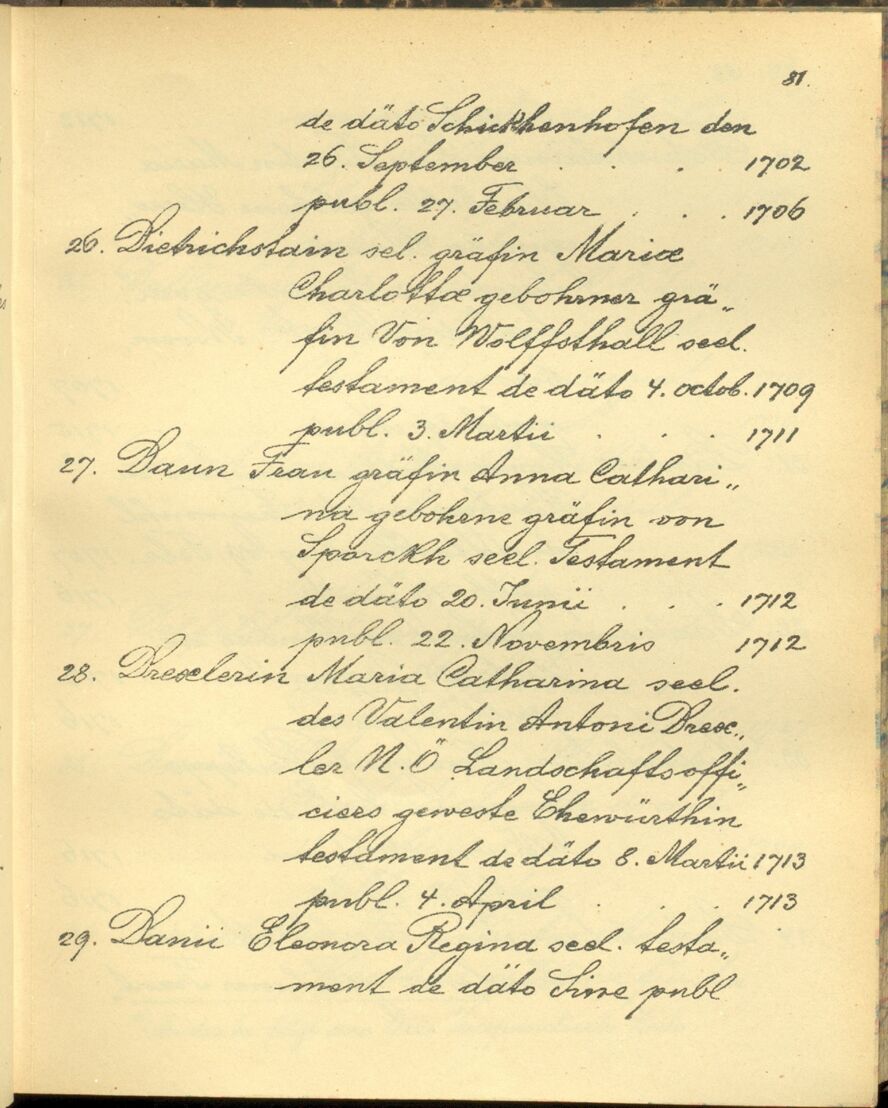 81.
de däto Schickhenhofen den
26. September . . . 1702
publ. 27. Februar . . . 1706
26. Dietrichstain sel. gräfin Mariæ
Charlottæ gebohrner grä„
fin Von Wolffsthall seel.
testament de däto 4. octob. 1709
publ. 3. Martii . . . 1711
27. Daun Frau gräfin Anna Cathari„
na gebohrne gräfin von
Sporckh seel. Testament
de däto 20. Junii . . . 1712
publ. 22. Novembris 1712
28. Drexlerin Maria Catharina seel.
des Valentin Antoni Drex„
ler N. Ö Landschaftsoffi„
ciers geweste Ehewürthin
testament de däto 8. Martii 1713
publ. 4. April . . . 1713
29. Danii Eleonora Regina seel. testa„
ment de däto Sine publ